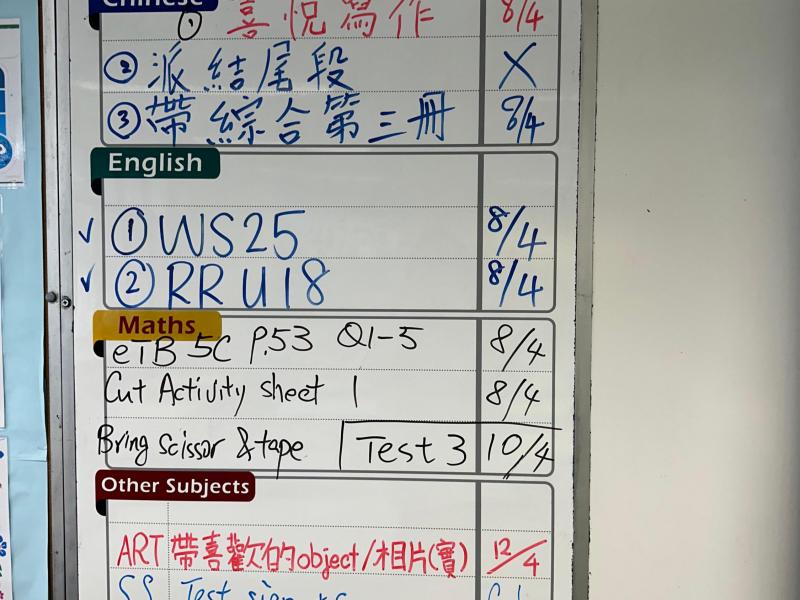 Chinese
① 喜悅寫作 8/4
② 派結尾段 X
③ 帶綜合第三冊 8/4
English
✓ ① WS25 8/4
✓ ② RR U18 8/4
Maths
eTB 5C P.53 Q1-5 8/4
Cut Activity sheet 1 8/4
Bring scissor & tape Test 3 10/4
Other Subjects
ART 帶喜歡的object/相片(實) 12/4
Test sign